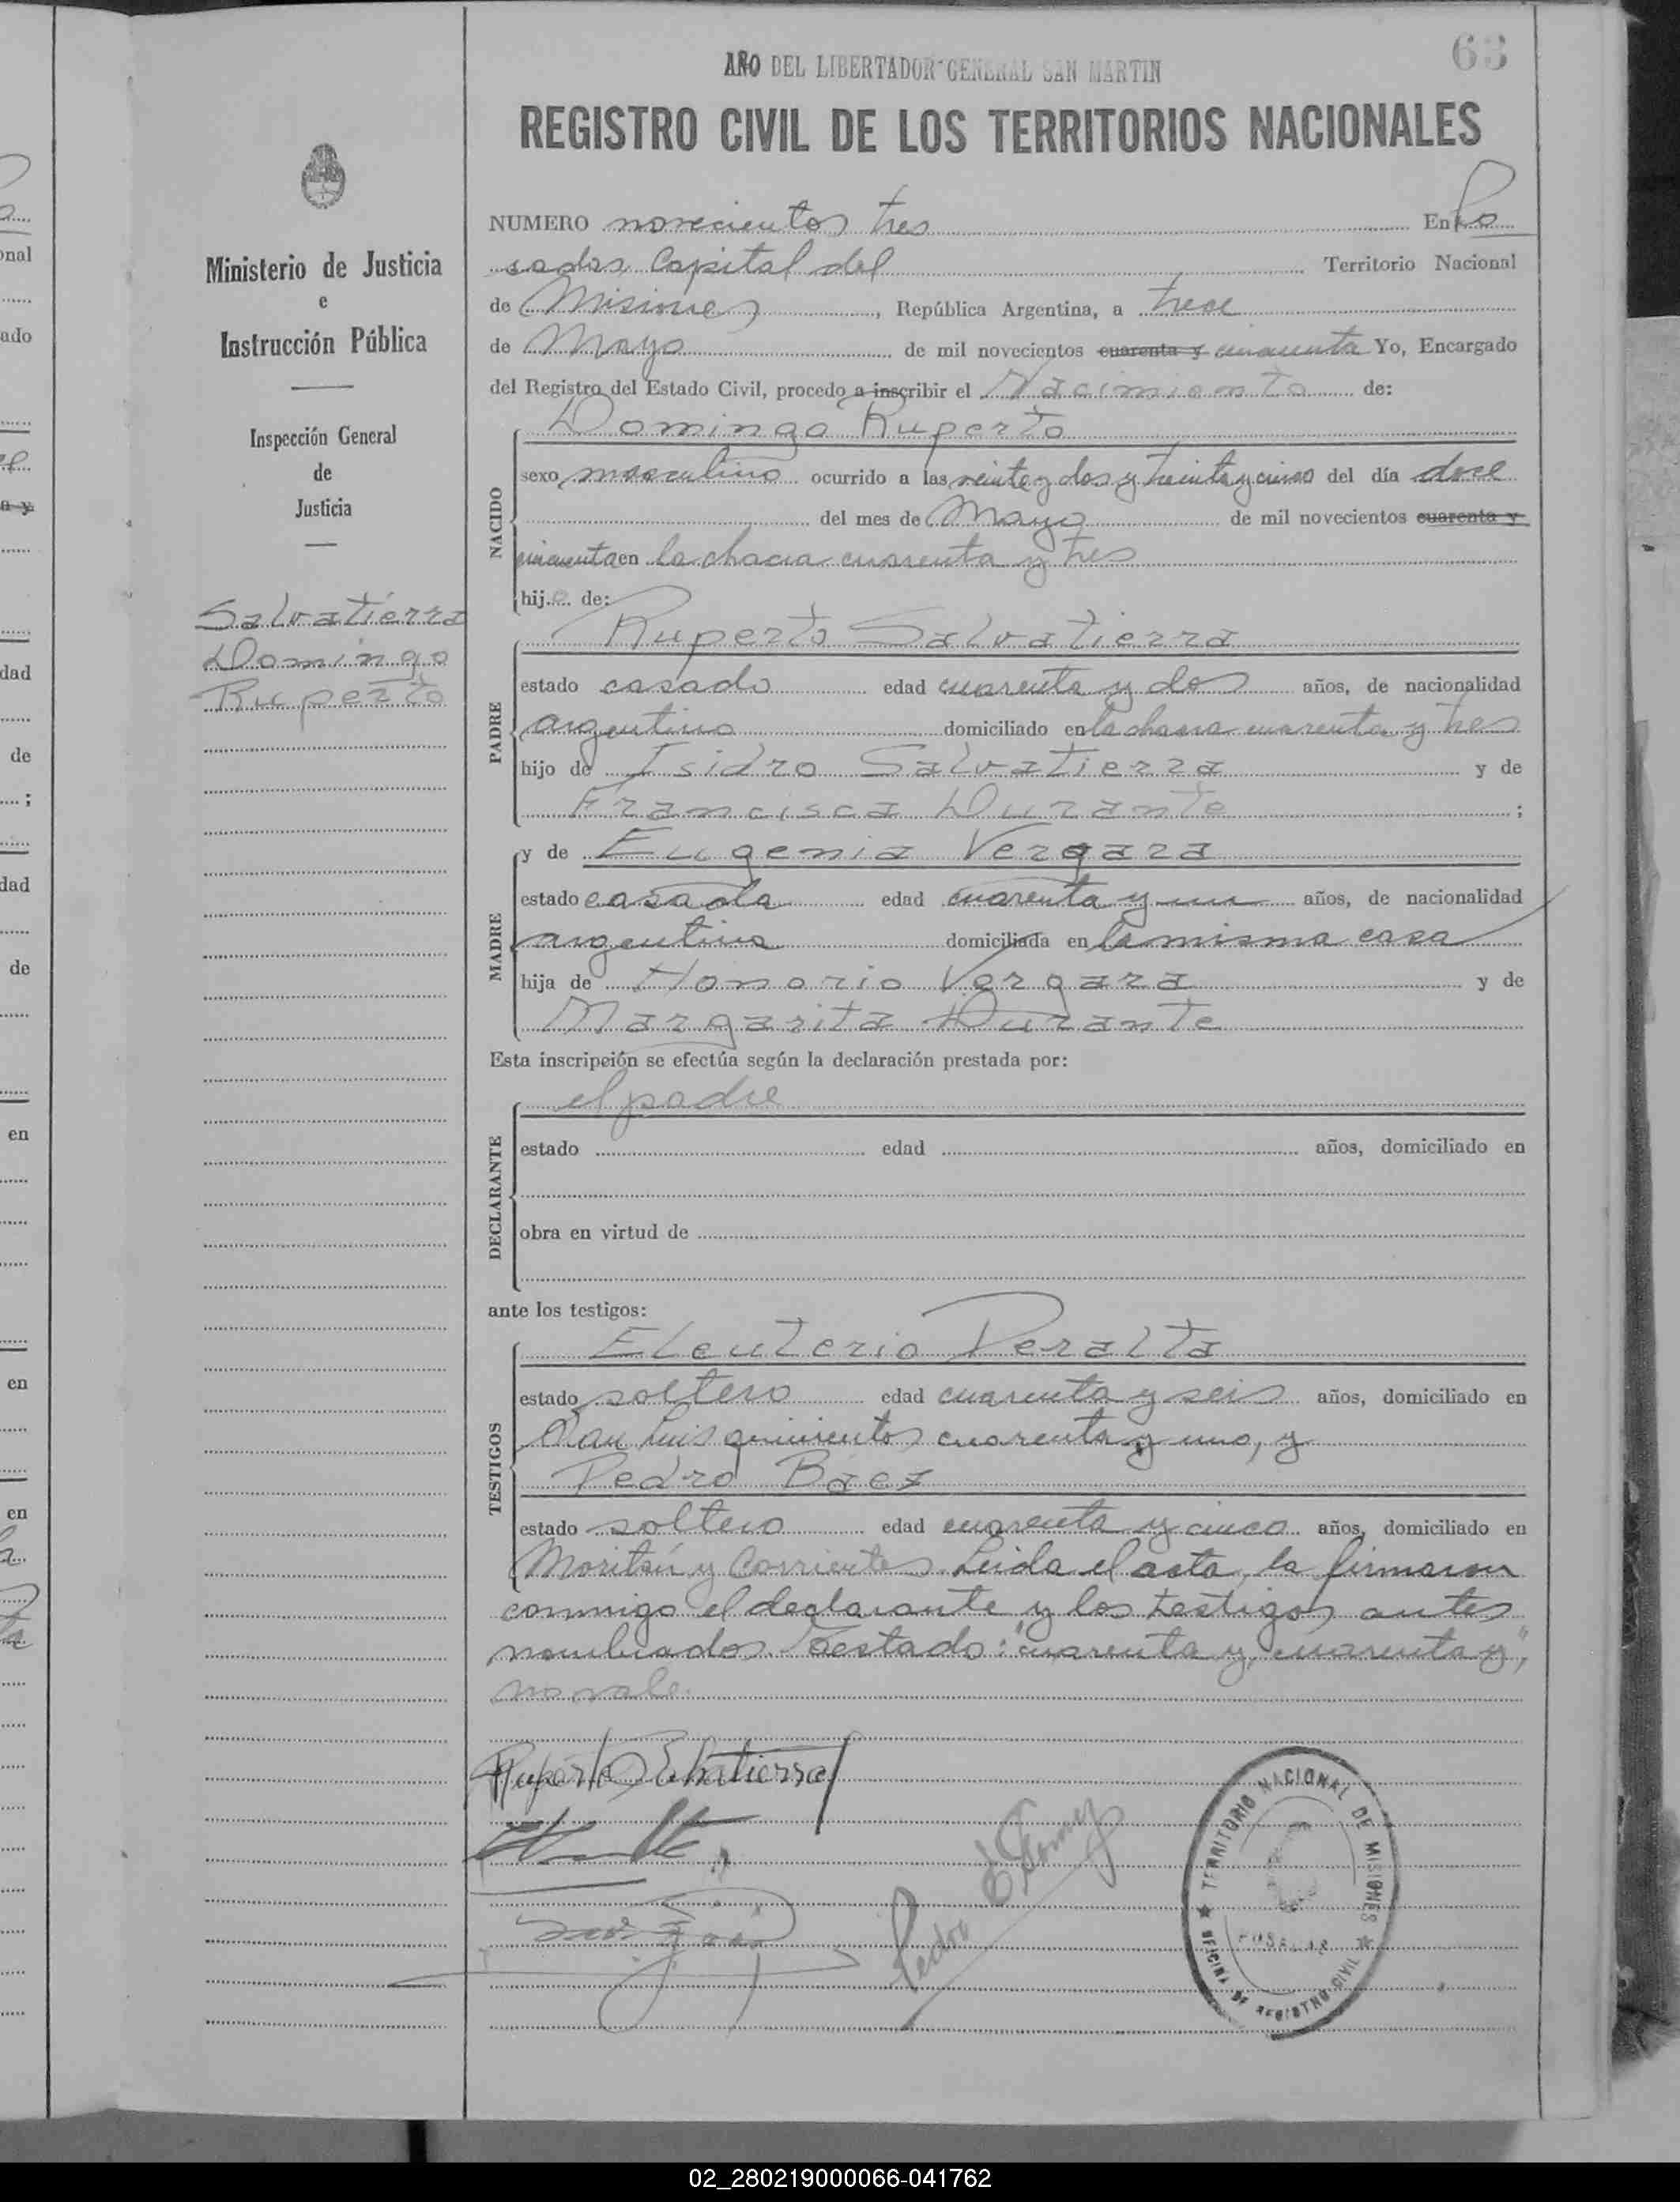 63
AÑO DEL LIBERTADOR GENERAL SAN MARTIN
REGISTRO CIVIL DE LOS TERRITORIOS NACIONALES
Ministerio de Justicia
e
Instrucción Pública
Inspección General
de
Justicia
Salvatierra
Domingo
Ruperto
NUMERO novecientos tres En Po
sadas Capital del Territorio Nacional
de Misiones, República Argentina, a trece
de Mayo de mil novecientos cuarenta y cincuenta Yo, Encargado
del Registro del Estado Civil, procedo a inscribir el Nacimiento de:
NACIDO
Domingo Ruperto
sexo masculino ocurrido a las veinte y dos y treinta y cinco del día doce
del mes de Mayo de mil novecientos cuarenta y
cincuenta en la chacra cuarenta y tres
hijo de:
PADRE
Ruperto Salvatierra
estado casado edad cuarenta y dos años, de nacionalidad
argentino domiciliado en la chacra cuarenta y tres
hijo de Isidro Salvatierra y de
Francisca Durante ;
MADRE
y de Eugenia Vergara
estado casada edad cuarenta y un años, de nacionalidad
argentina domiciliada en la misma casa
hija de Honorio Vergara y de
Margarita Durante
Esta inscripción se efectúa según la declaración prestada por:
DECLARANTE
el padre
estado edad años, domiciliado en
obra en virtud de
ante los testigos:
TESTIGOS
Eleuterio Peralta
estado soltero edad cuarenta y seis años, domiciliado en
San Luis quinientos cuarenta y uno, y
Pedro Báez
estado soltero edad cuarenta y cinco años, domiciliado en
y Corrientes. Leida el acta, la firmaron
conmigo el declarante y los testigos antes
nombrados. Testado: "cuarenta y, cuarenta y",
no vale.
Ruperto Salvatierra
Pedro
TERRITORIO NACIONAL DE MISIONES
POSADAS
OFICINA DE REGISTRO CIVIL
onal
ado
a y
dad
de
;
dad
de
en
en
en
02_280219000066-041762